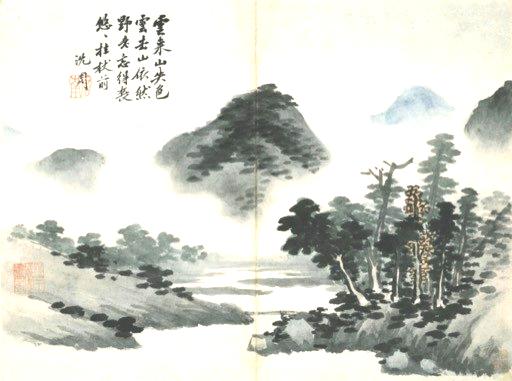 雲來山失色
雲去山依然
野老忘得喪
悠〻拄杖前
沈周